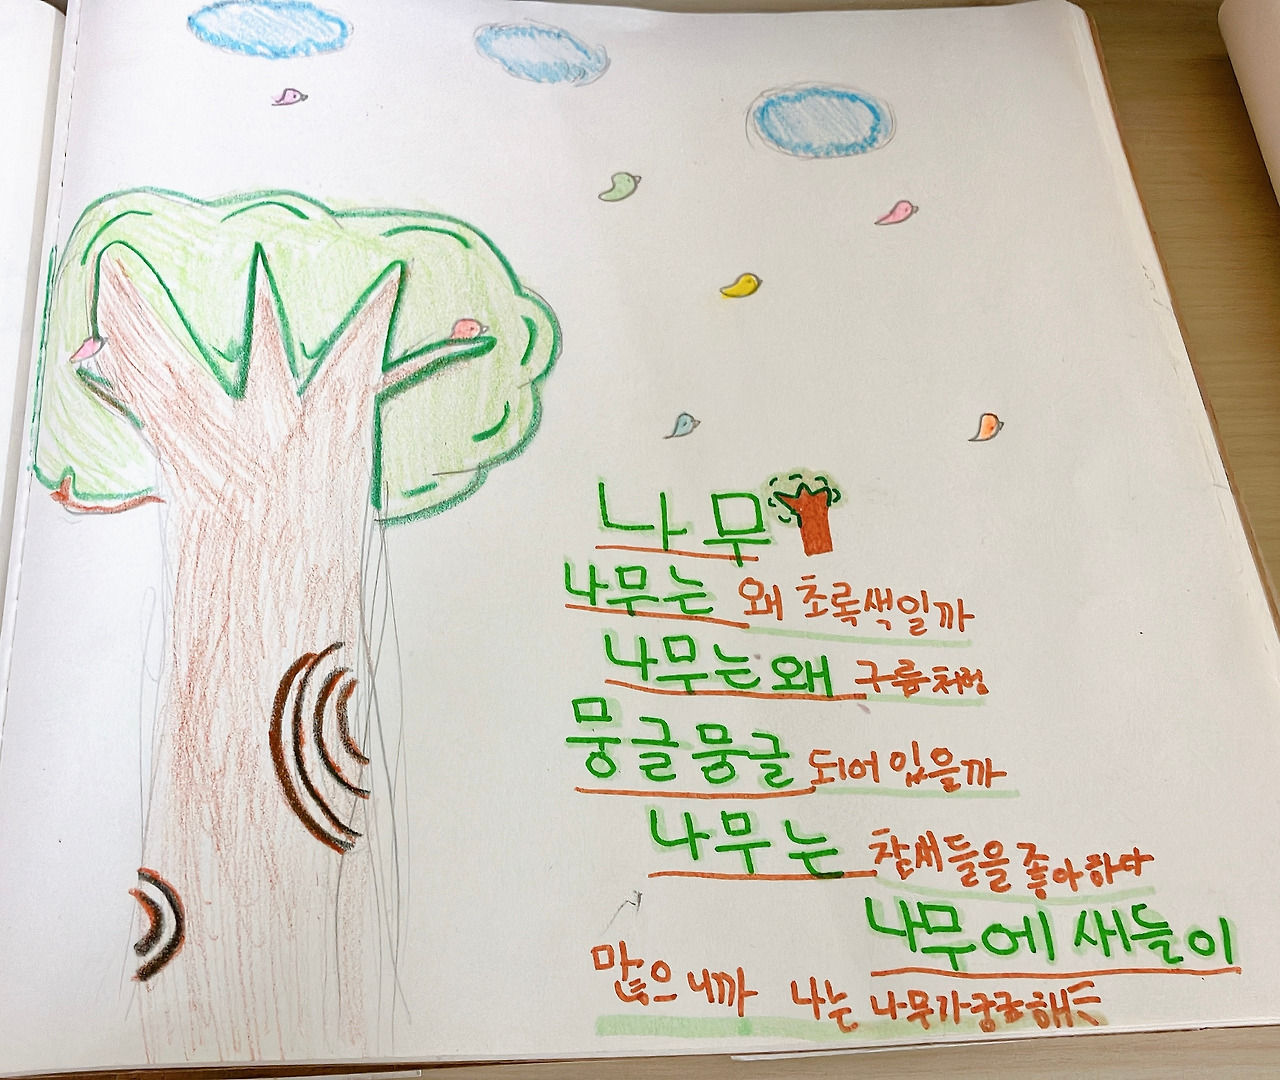 나무
나무는 왜 초록색일까
나무는 왜 구름처럼
뭉글뭉글 되어 있을까
나무는 참새들을 좋아하다
나무에 새들이
많으니까 나는 나무가 궁금해